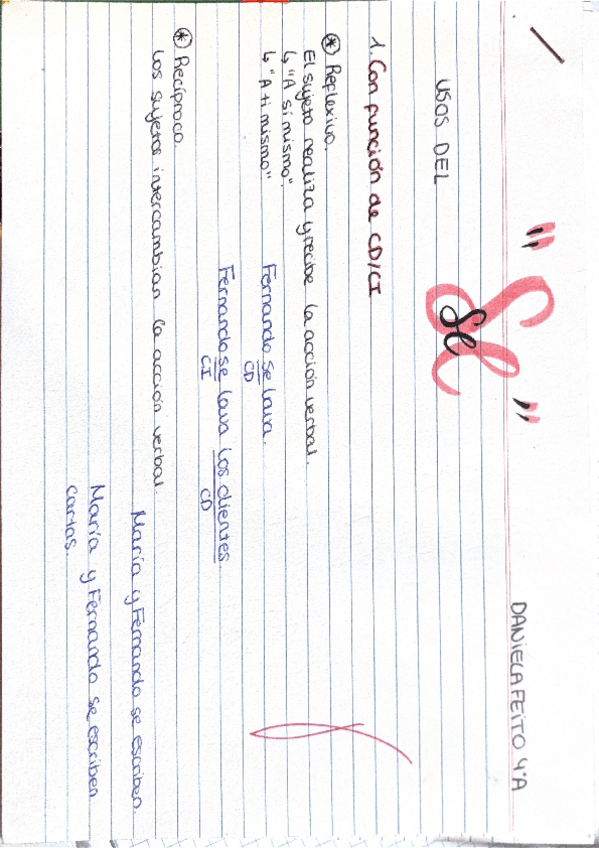 DANIELA FEITO 4ºA
USOS DEL "Se"
Se
1. Con función de CD/CI
* Reflexivo.
El sujeto realiza y recibe la acción verbal.
↳ "A sí mismo".
↳ "A ti mismo"
Fernando se lava.
CD
Fernando se lava los dientes.
CI CD
* Recíproco.
Los sujetos intercambian la acción verbal.
María y Fernando se escriben.
María y Fernando se escriben
cartas.